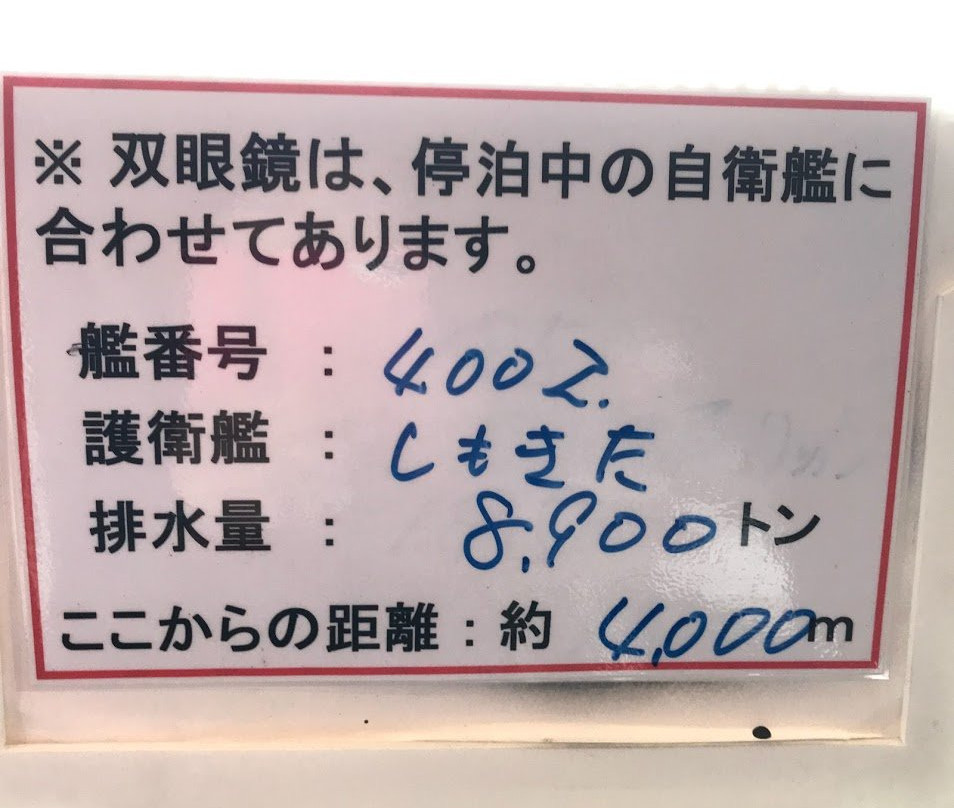 ※ 双眼鏡は、停泊中の自衛艦に
合わせてあります。
艦番号 : 4002.
護衛艦 : しもきた
排水量 : 8,900トン
ここからの距離 : 約 4,000m